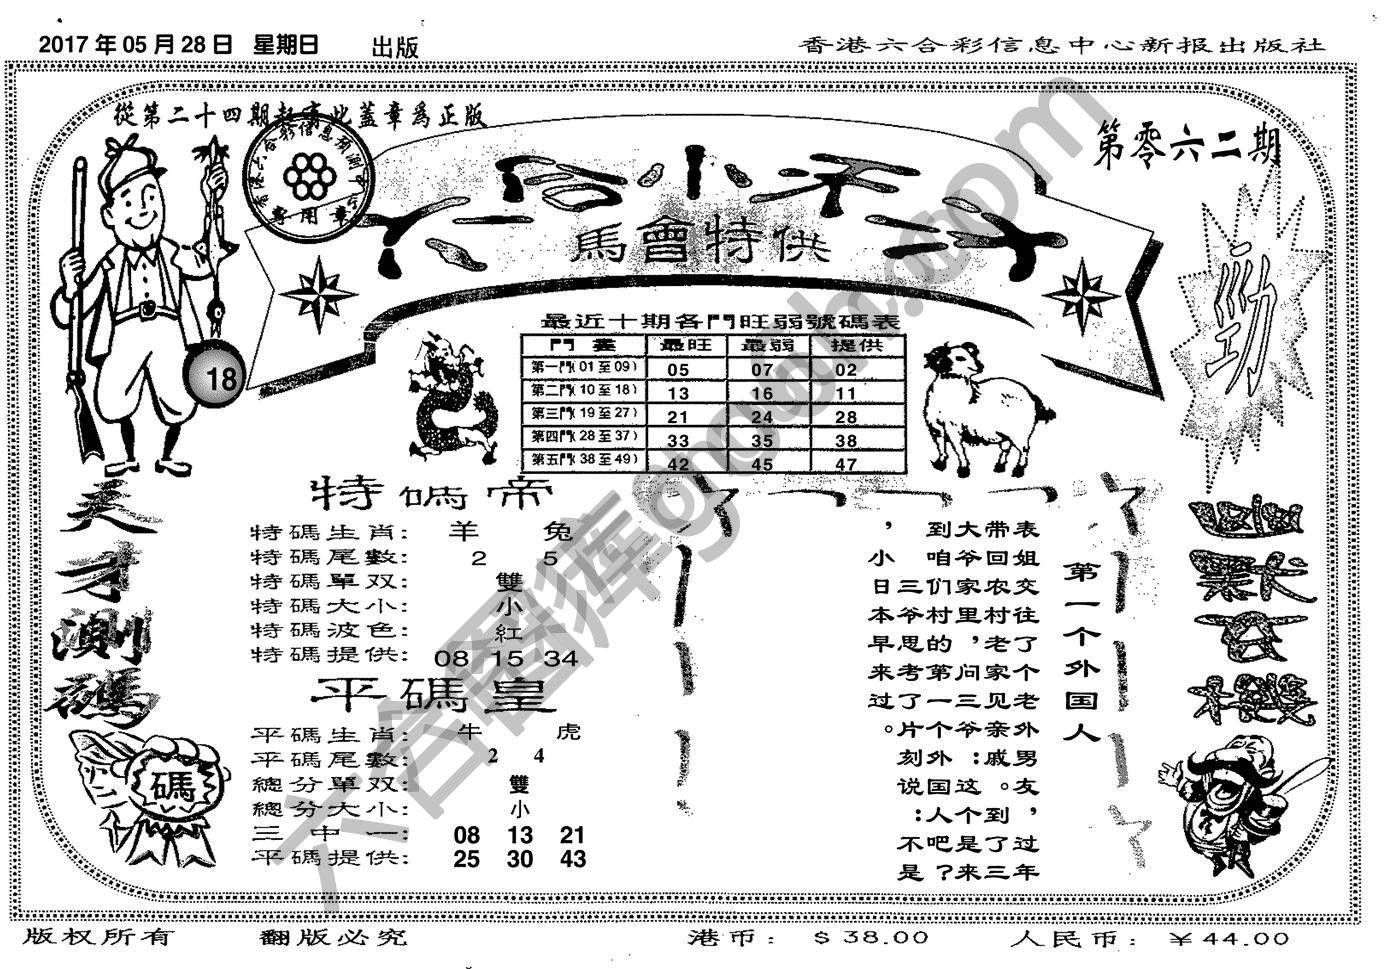 2017年05月28日 星期日 出版
香港六合彩信息中心新报出版社
從第二十四期起寄此蓋章爲正版
第零六二期
馬會特供
專用章
勁
18
最近十期各門旺弱號碼表
門畫 最旺 最弱 提供
第一門(01至09) 05 07 02
第二門(10至18) 13 16 11
第三門(19至27) 21 24 28
第四門(28至37) 33 35 38
第五門(38至49) 42 45 47
天才測碼
碼
特碼帝
特碼生肖: 羊 兔
特碼尾數: 2 5
特碼單双: 雙
特碼大小: 小
特碼波色: 紅
特碼提供: 08 15 34
平碼皇
平碼生肖: 牛 虎
平碼尾數: 2 4
總分單双: 雙
總分大小: 小
三中一: 08 13 21
平碼提供: 25 30 43
第一个外国人
表姐交往了个老外男友，过年
带回农村老家见亲戚。到了三
大爷家里，问三爷：这个是来
到咱们村的第一个外国人吧？
三爷思考了片刻说：不是
，小日本早来过。
版权所有 翻版必究 港币：$38.00 人民币：￥44.00